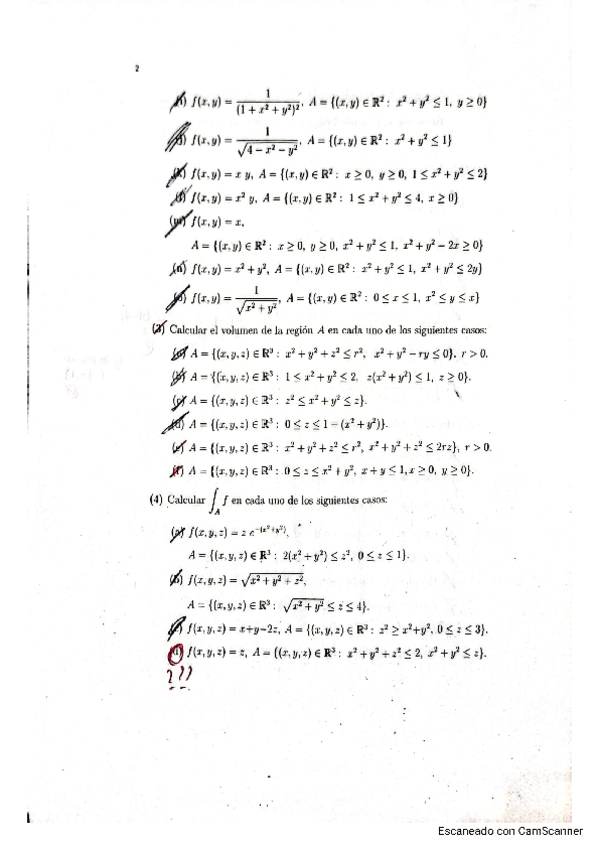 2
(i) f(x,y) = 1/(1 + x² + y²)², A = {(x,y) ∈ R² : x² + y² ≤ 1, y ≥ 0}
(j) f(x,y) = 1/√(4 − x² − y²), A = {(x,y) ∈ R² : x² + y² ≤ 1}
(k) f(x,y) = x y, A = {(x,y) ∈ R² : x ≥ 0, y ≥ 0, 1 ≤ x² + y² ≤ 2}
(l) f(x,y) = x² y, A = {(x,y) ∈ R² : 1 ≤ x² + y² ≤ 4, x ≥ 0}
(m) f(x,y) = x,
A = {(x,y) ∈ R² : x ≥ 0, y ≥ 0, x² + y² ≤ 1, x² + y² − 2x ≥ 0}
(n) f(x,y) = x² + y², A = {(x,y) ∈ R² : x² + y² ≤ 1, x² + y² ≤ 2y}
(o) f(x,y) = 1/√(x² + y²), A = {(x,y) ∈ R² : 0 ≤ x ≤ 1, x² ≤ y ≤ x}
(3) Calcular el volumen de la región A en cada uno de los siguientes casos:
(a) A = {(x,y,z) ∈ R³ : x² + y² + z² ≤ r², x² + y² − ry ≤ 0}, r > 0.
(b) A = {(x,y,z) ∈ R³ : 1 ≤ x² + y² ≤ 2, z(x² + y²) ≤ 1, z ≥ 0}.
(c) A = {(x,y,z) ∈ R³ : z² ≤ x² + y² ≤ z}.
(d) A = {(x,y,z) ∈ R³ : 0 ≤ z ≤ 1 − (x² + y²)}.
(e) A = {(x,y,z) ∈ R³ : x² + y² + z² ≤ r², x² + y² + z² ≤ 2rz}, r > 0.
(f) A = {(x,y,z) ∈ R³ : 0 ≤ z ≤ x² + y², x + y ≤ 1, x ≥ 0, y ≥ 0}.
(4) Calcular ∫_A f en cada uno de los siguientes casos:
(a) f(x,y,z) = z e^−(x²+y²),
A = {(x,y,z) ∈ R³ : 2(x² + y²) ≤ z², 0 ≤ z ≤ 1}.
(b) f(x,y,z) = √(x² + y² + z²),
A = {(x,y,z) ∈ R³ : √(x² + y²) ≤ z ≤ 4}.
(c) f(x,y,z) = x+y−2z, A = {(x,y,z) ∈ R³ : z² ≥ x²+y², 0 ≤ z ≤ 3}.
(d) f(x,y,z) = z, A = {(x,y,z) ∈ R³ : x² + y² + z² ≤ 2, x² + y² ≤ z}.
???
Escaneado con CamScanner